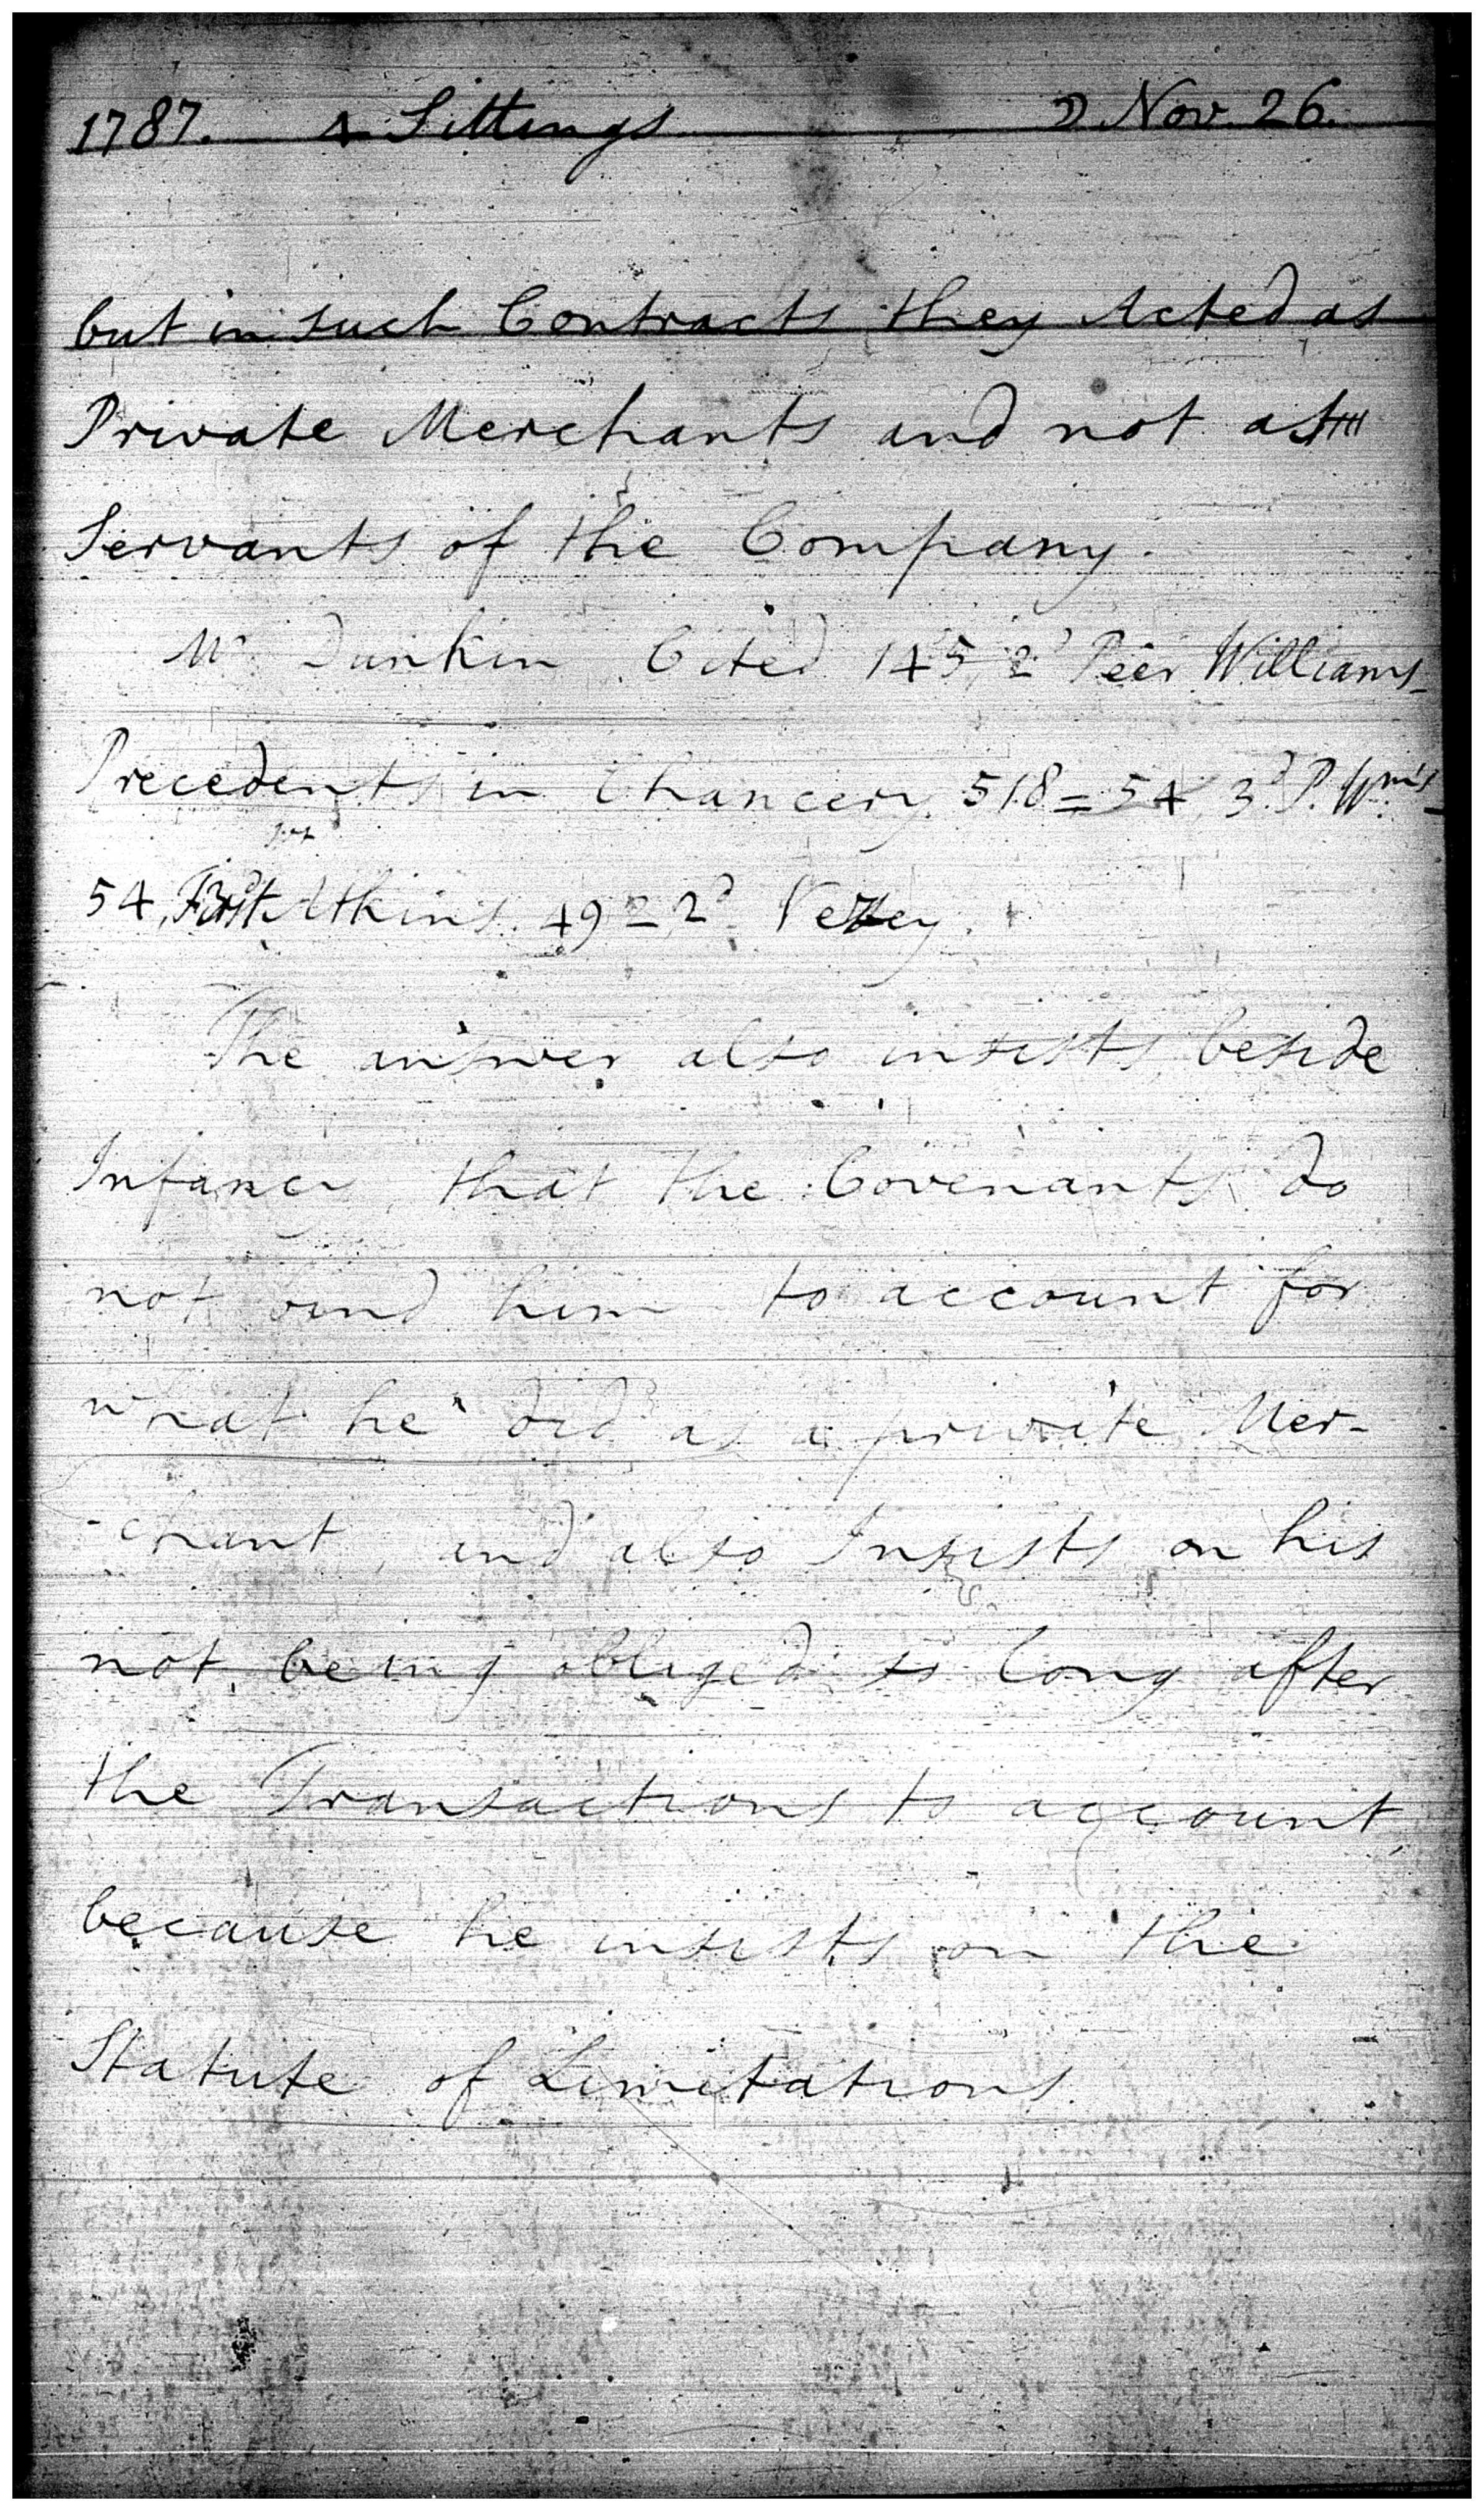 1787. 4 Sittings ☽ Nov. 26.
but in such Contracts they Acted as
Private Merchants and not as
Servants of the Company.
Mr. Dunkin Cited 145, 2d Peer Williams
Precedents in Chancery 518 = 54, 3d P. Wms
54, Atkins. 49 = 2d Vezey.
The answer also insists beside
Infancy, that the Covenants do
not bind him to account for
what he did as a private Mer-
-chant, and also Insists on his
not being obliged so long after
the Transactions to account,
because he insists on the
Statute of Limitations